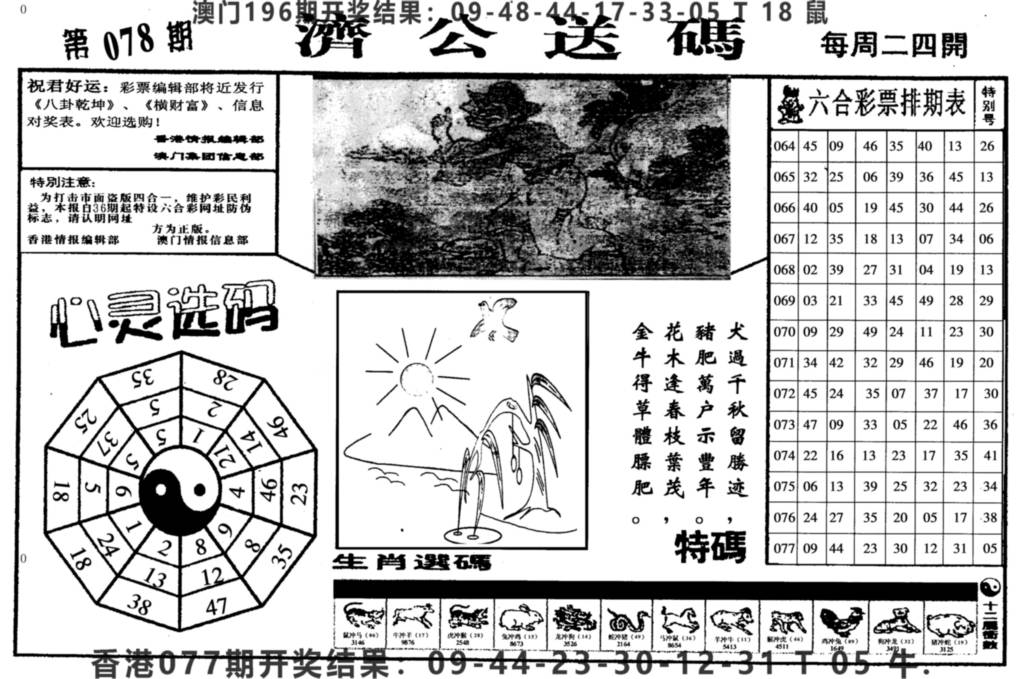 澳门196期开奖结果：09-48-44-17-33-05 T 18 鼠
第 078 期
濟公送碼
每周二四開
祝君好运：彩票编辑部将近发行
《八卦乾坤》、《横财富》、信息
对奖表。欢迎选购！
香港情报编辑部
澳门集团信息部
特别注意：
为打击市面盗版四合一，维护彩民利
益，本报自36期起特设六合彩网址防伪
标志，请认明网址
方为正版。
香港情报编辑部 澳门情报信息部
心灵选码
35 28 46 23 35 47 38 18 18 25
5 2 14 46 8 12 13 24 5 37
5 1 21 4 9 8 2 1 6 5
犬過千秋留勝迹，
豬肥萬户示豐年。
花木逢春枝葉茂，
金牛得草體膘肥。
特碼
生肖選碼
六合彩票排期表 特别号
064 45 09 46 35 40 13 26
065 32 25 06 39 36 45 13
066 40 05 19 45 30 44 26
067 12 35 18 13 07 34 06
068 02 39 27 31 04 19 13
069 03 21 33 45 49 28 29
070 09 29 49 24 11 23 30
071 34 42 32 29 46 19 20
072 45 24 35 07 37 17 30
073 47 09 33 05 22 46 36
074 22 16 13 23 17 35 41
075 06 13 39 25 32 23 34
076 24 27 35 20 05 17 38
077 09 44 23 30 12 31 05
鼠冲马 牛冲羊 虎冲猴 兔冲鸡 龙冲狗 蛇冲猪 马冲鼠 羊冲牛 猴冲虎 鸡冲兔 狗冲龙 猪冲蛇
3146 9876 2548 8673 3526 2164 8654 5413 4511 1649 3125
香港077期开奖结果：09-44-23-30-12-31 T 05 牛.